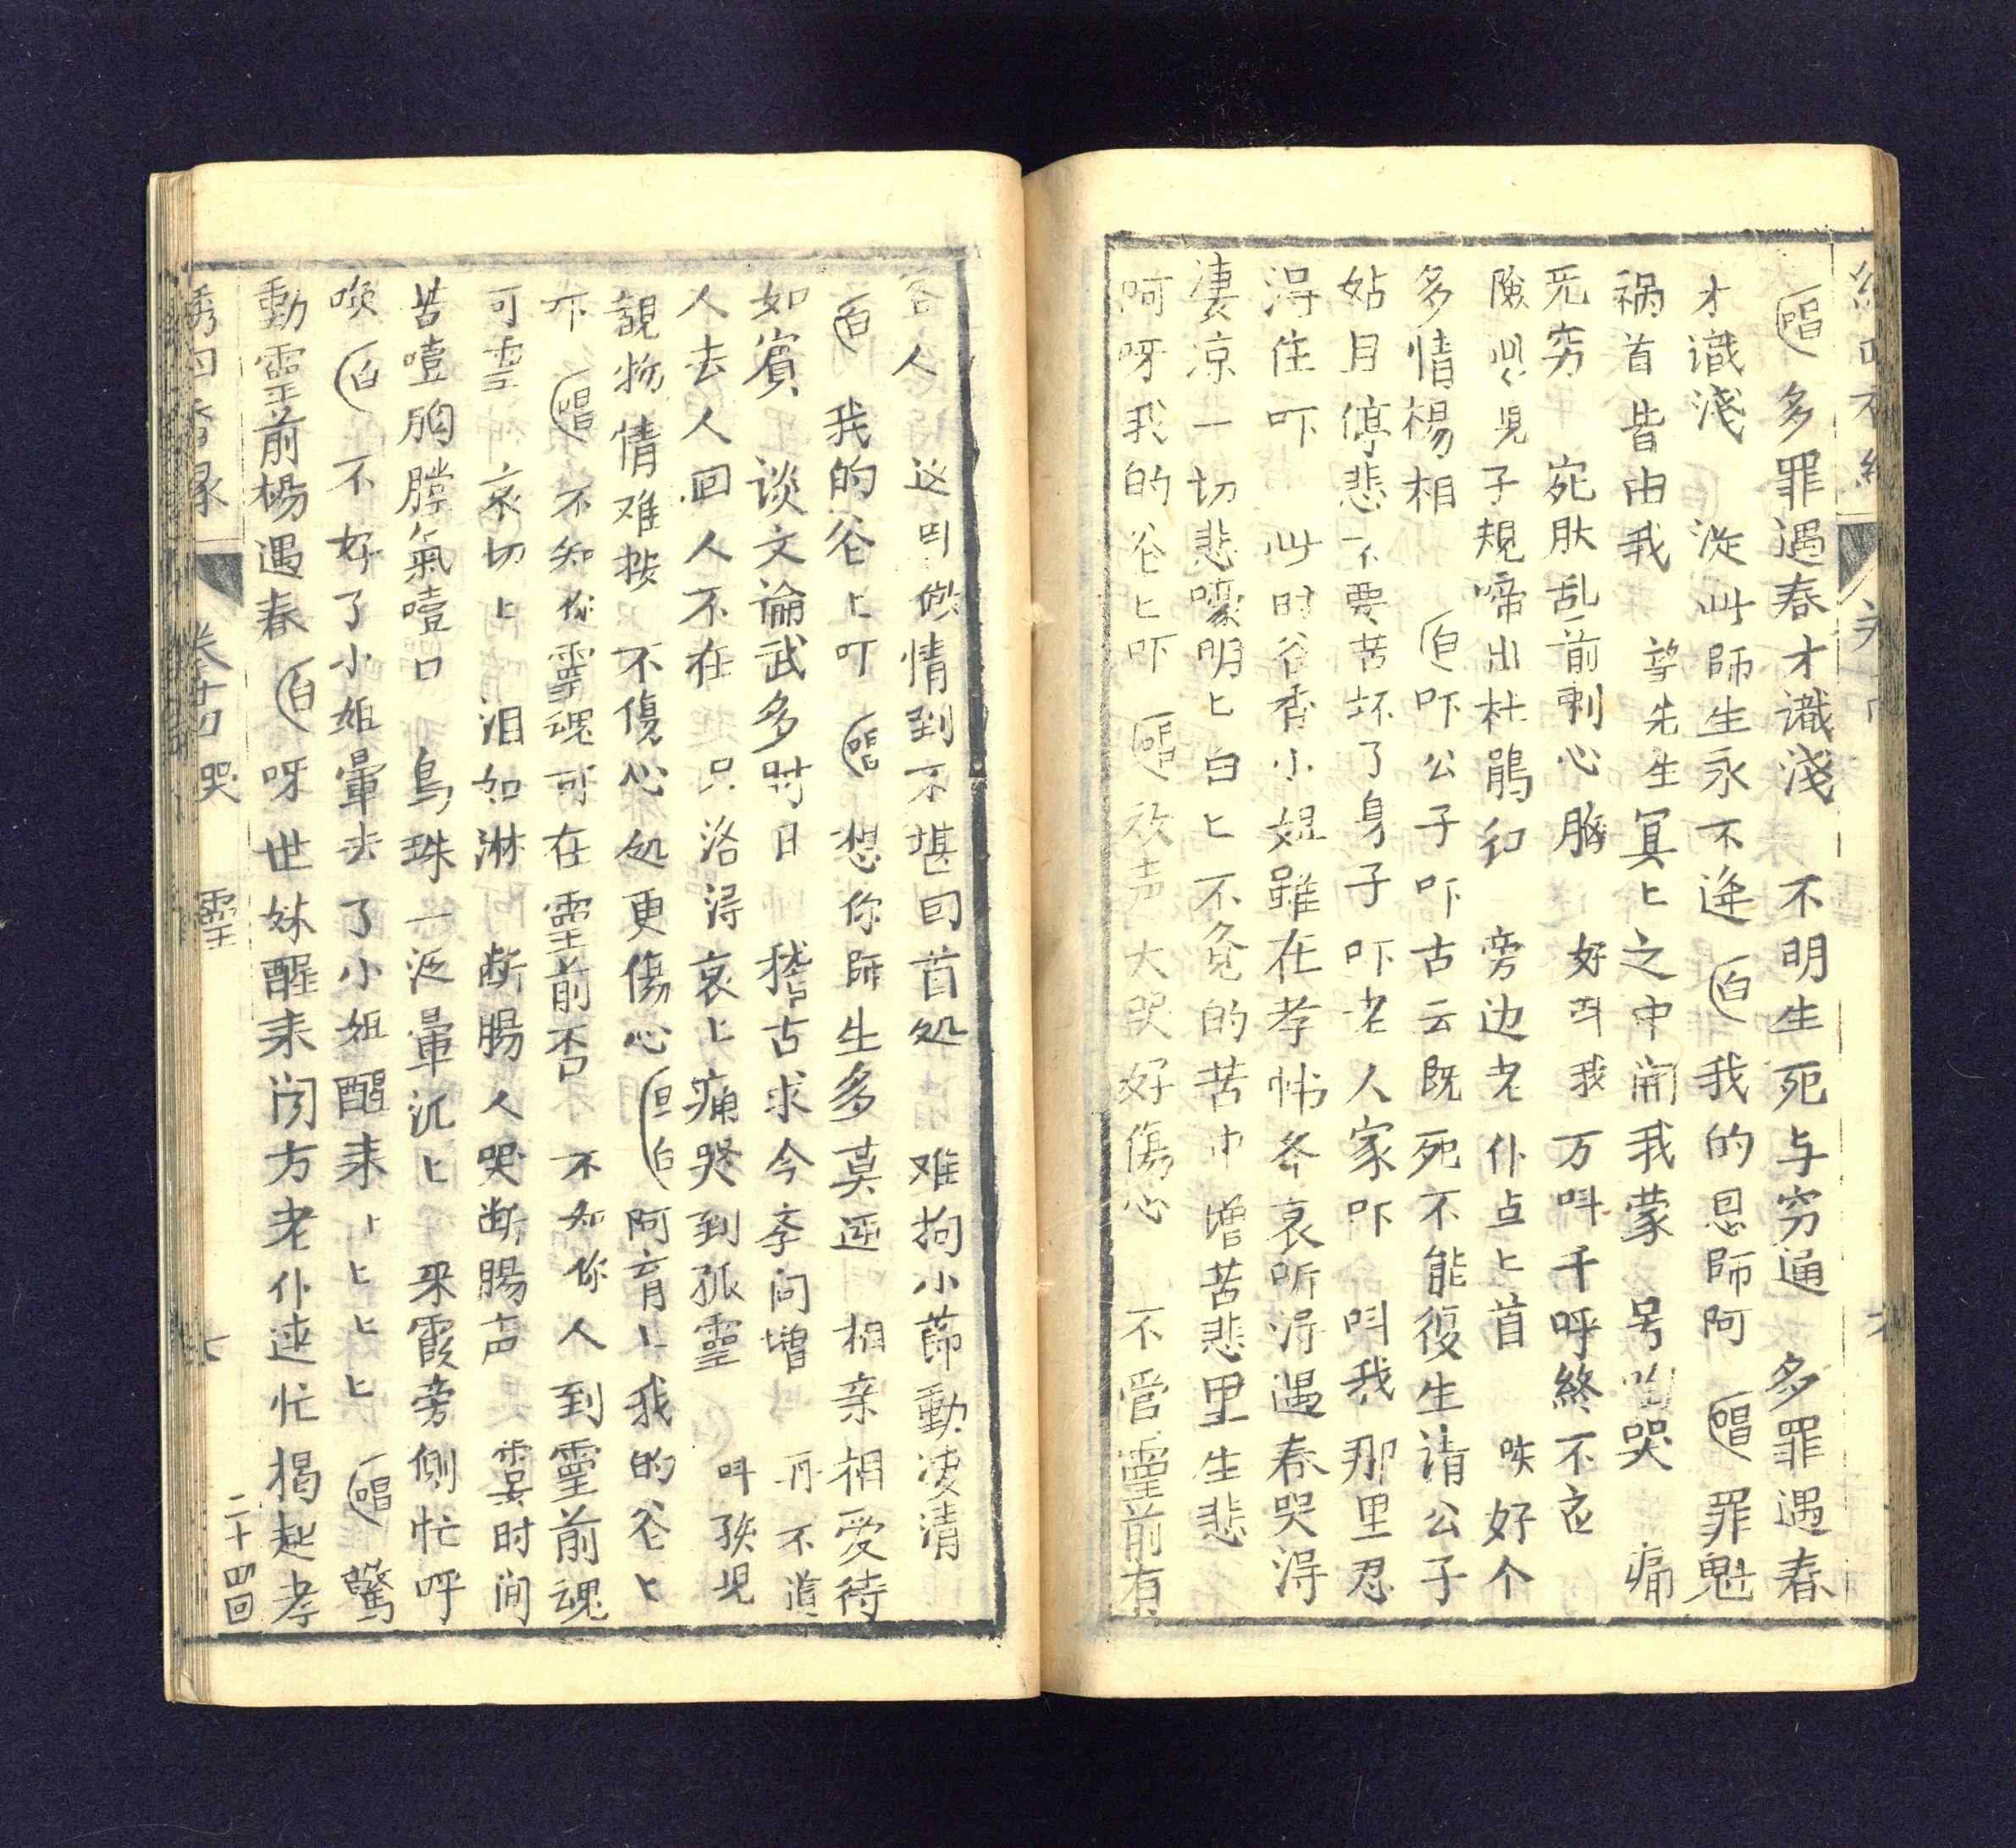 唱 多罪遇春才識淺 不明生死与穷通 多罪遇春
才識淺 從此師生永不逢 白 我的恩師阿 唱 罪魁
祸首皆由我 望先生冥匕之中開我蒙 号啕哭 痛
无穷 宛肽乱箭刺心胸 好呌我万呌千呼終不应
險些兒子規啼出杜鵑红 旁边老仆点匕首 唉好个
多情楊相 白 吓公子吓古云既死不能復生请公子
姑且停悲不要苦坏了身子吓老人家吓 呌我那里忍
淂住吓 此时谷香小姐雖在孝帏冬哀听淂遇春哭淂
凄凉一切悲嚎明匕白匕不免的苦中 增苦悲里生悲
呵呀我的爸匕吓 唱 放声大哭好傷心 不管靈前有
客人 这囙做情到不堪回首処 难拘小莭動凄清
白 我的爸匕吖 唱 想你師生多莫逆 相亲相爱待
如賓 谈文論武多时日 稽古求今李问增 再不道
人去人回人不在 只洛淂哀匕痛哭到孤靈 呌孩児
覩物情难挨 不傷心処更傷心 旦白 阿育匕我的爸匕
吓 唱 不知你靈魂可在靈前否 不知你人到靈前魂
可靈 哀切匕 泪如淋 断腸人哭断腸声 霎时间
苦噎胸膛氣噎口 烏珠一泛暈沉匕 釆霞旁側忙呼
喚 白 不好了小姐暈去了小姐醒来匕匕匕匕 唱 驚
動靈前楊遇春 白 呀世妹醒来闵方老仆连忙揭起孝
绣囙香缘 卷十四 哭 靈
二十四回